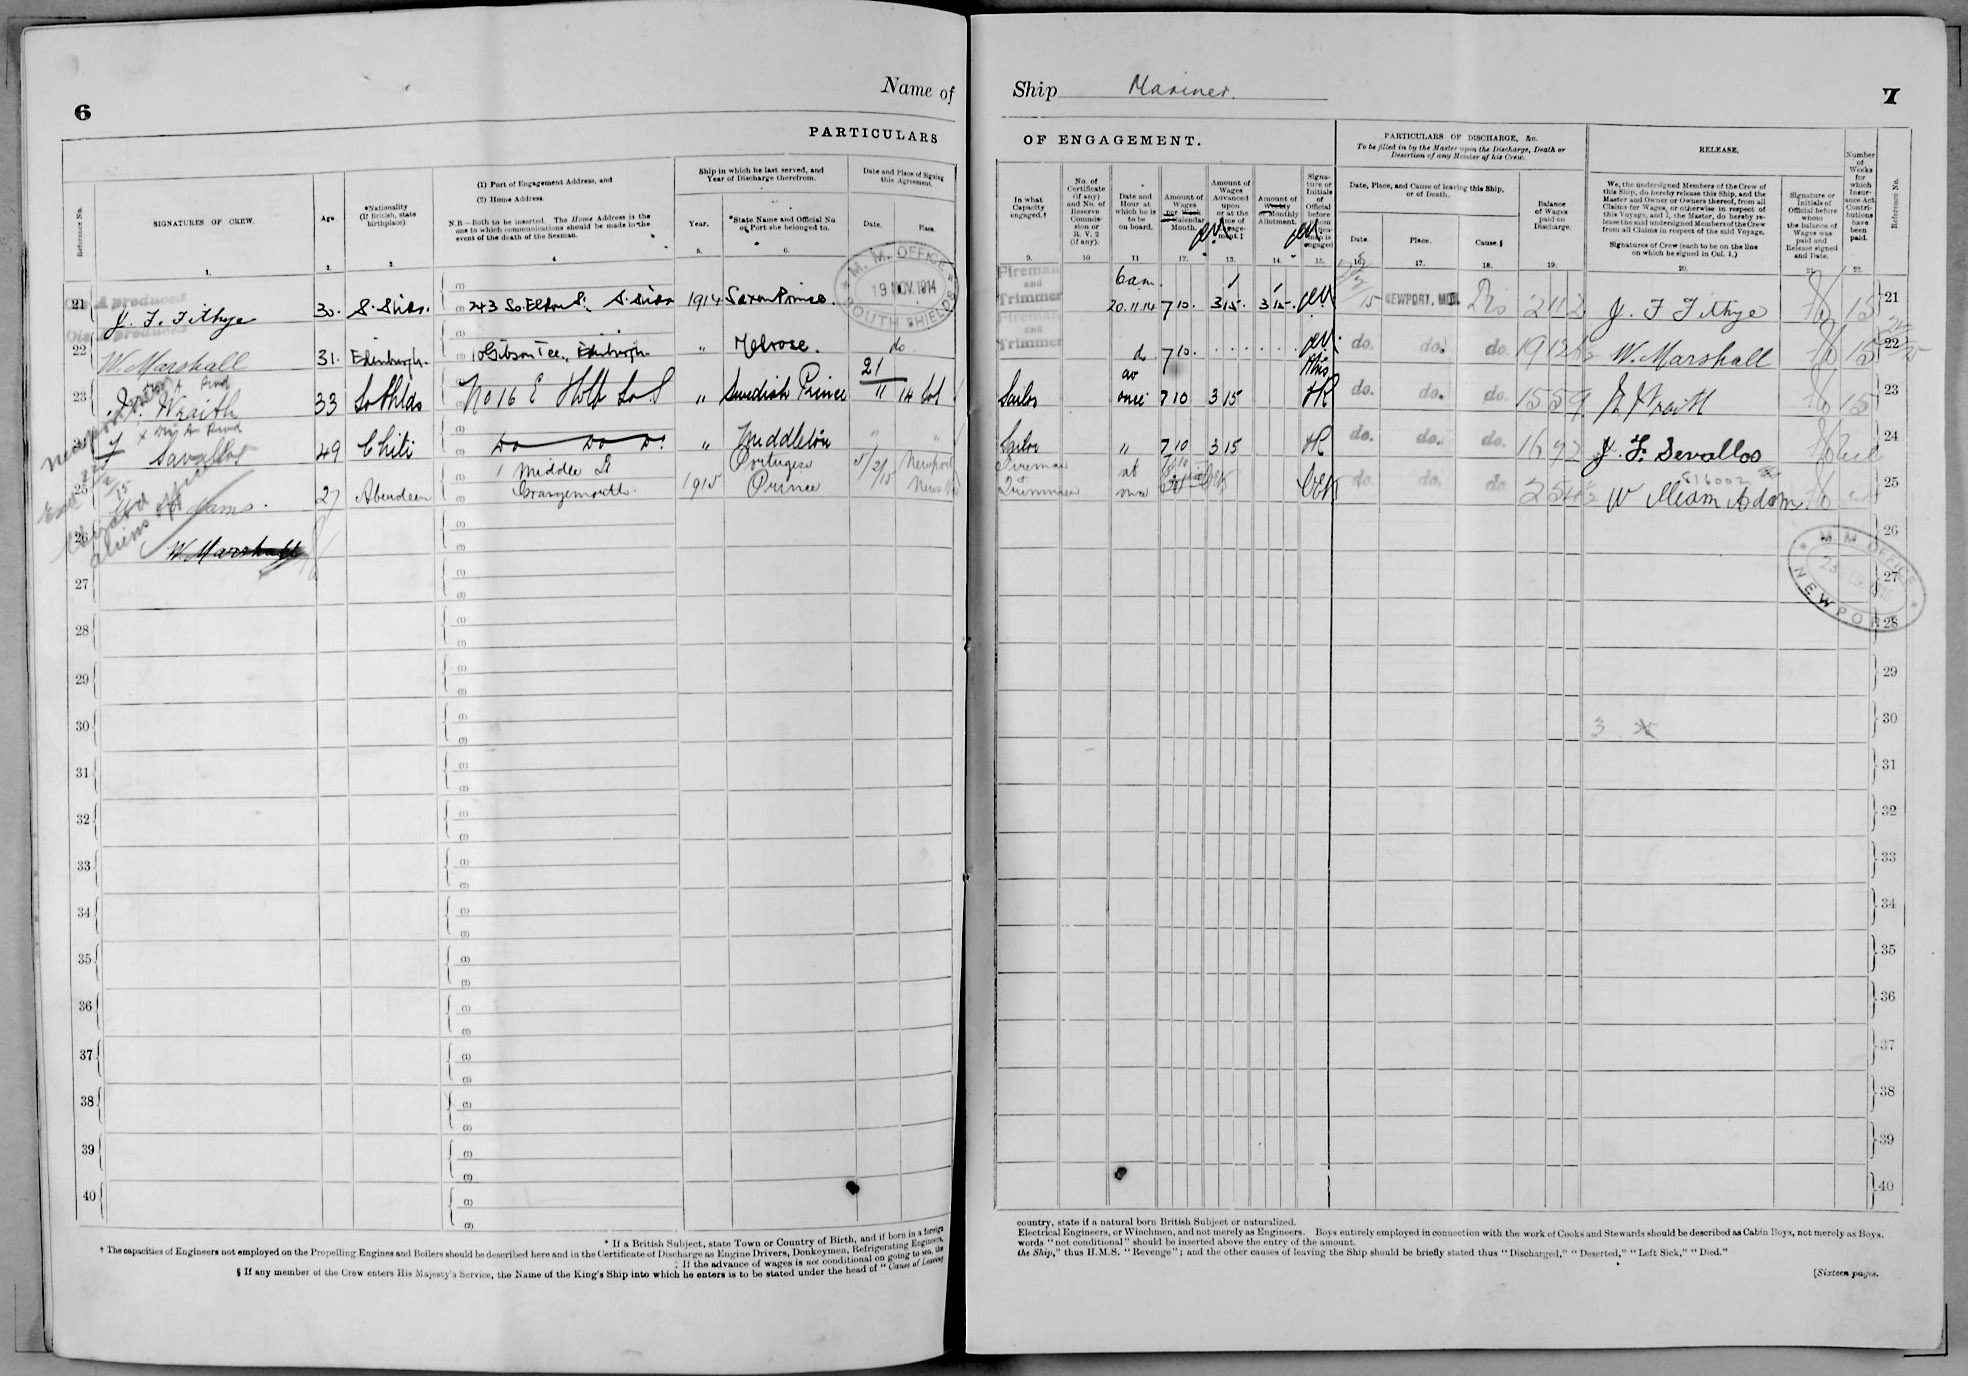 6
Name of
PARTICULARS
Reference No.
SIGNATURES OF CREW.
Age.
*Nationality
(If British, state
birthplace).
(1) Port of Engagement Address, and
(2) Home Address.
N.B.—Both to be inserted. The Home Address is the
one to which communications should be made in the
event of the death of the Seaman.
Ship in which he last served, and
Year of Discharge therefrom.
Year.
*State Name and Official No.
or Port she belonged to.
Date and Place of Signing
this Agreement.
Date.
Place.
1. 2. 3. 4 5. 6.
21 J. F. Tithye 30. S. Shds. 243 So. Eldon St. S. Shds 1914 Saxon Prince.
M. M. OFFICE
19 NOV. 1914
SOUTH SHIELDS
22 W. Marshall 31. Edinburgh. 10 Gibson Tce., Edinburgh " Melrose. do
23 Wraith 33 So Shlds No 16 E Holb So S " Swedish Prince 21/11 14 Sol
24 Savallos 49 Chili Do Do Do. " Middleton " "
25 Adams. 27 Aberdeen 1 Middle St
Grangemouth. 1915 Portugese
Prince 5/2/15 Newport
26 W. Marshall
27
28
29
30
31
32
33
34
35
36
37
38
39
40
* If a British Subject, state Town or Country of Birth, and if born in a foreign
† The capacities of Engineers not employed on the Propelling Engines and Boilers should be described here and in the Certificate of Discharge as Engine Drivers, Donkeymen, Refrigerating Engineers,
‡ If the advance of wages is not conditional on going to sea, the
§ If any member of the Crew enters His Majesty's Service, the Name of the King's Ship into which he enters is to be stated under the head of "Cause of Leaving
Ship Mariner.
7
OF ENGAGEMENT.
PARTICULARS OF DISCHARGE, &c.
To be filled in by the Master upon the Discharge, Death or
Desertion of any Member of his Crew.
RELEASE.
Number
of
Weeks
for
which
Insur-
ance Act
Contri-
butions
have
been
paid.
Reference No.
In what
Capacity
engaged.†
No. of
Certificate
(if any)
and No. of
Reserve
Commis-
sion or
R. V. 2
(if any).
Date and
Hour at
which he is
to be
on board.
Amount of
Wages
per Week
Calendar
Month.
Amount of
Wages
Advanced
upon
or at the
time of
Engage-
ment.‡
Amount of
Weekly
or Monthly
Allotment.
Signa-
ture or
Initials
of
Official
before
whom
the Sea-
man is
engaged
Date, Place, and Cause of leaving this Ship,
or of Death.
Date.
Place.
Cause.§
Balance
of Wages
paid on
Discharge.
We, the undersigned Members of the Crew of
this Ship, do hereby release this Ship, and the
Master and Owner or Owners thereof, from all
Claims for Wages, or otherwise in respect of
this Voyage, and I, the Master, do hereby re-
lease the said undersigned Members of the Crew
from all Claims in respect of the said Voyage.
Signatures of Crew (each to be on the line
on which he signed in Col. 1.)
Signature or
Initials of
Official before
whom
the balance of
Wages was
paid and
Release signed
and Date.
9. 10 11 12. 13. 14. 15. 16. 17. 18. 19. 20. 22.
Fireman
and
Trimmer 6 am.
20.11.14 7 10. 3 15. 3 15. NEWPORT, MON. Dis J. F Tithye 15 21
Fireman
and
Trimmer do 7 10. do. do. do. W. Marshall 15 22
Sailor at
once 7 10 3 15 HR do. do. do. 15 5 9 Wraith 15 23
Sailor " 7 10 3 15 HR do. do. do. J. F. Sevallos 24
Fireman
Trimmer at
once do. do. do. William Adams 25
816002
26
M. M. OFFICE
NEWPORT
27
28
29
30
31
32
33
34
35
36
37
38
39
40
country, state if a natural born British Subject or naturalized.
Electrical Engineers, or Winchmen, and not merely as Engineers. Boys entirely employed in connection with the work of Cooks and Stewards should be described as Cabin Boys, not merely as Boys.
words "not conditional" should be inserted above the entry of the amount.
the Ship," thus H.M.S. "Revenge"; and the other causes of leaving the Ship should be briefly stated thus "Discharged," "Deserted," "Left Sick," "Died."
[Sixteen pages.